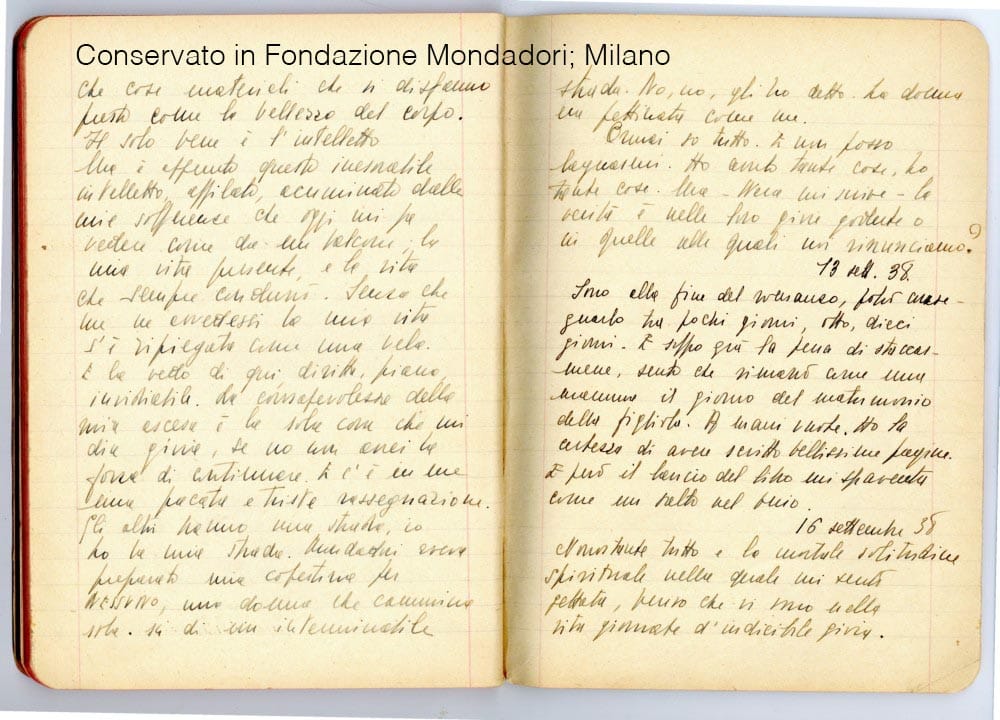 Conservato in Fondazione Mondadori; Milano
che cose materiali che si disfanno
presto come la bellezza del corpo.
Il solo bene è l'intelletto
Ma è appunto questo inesorabile
intelletto, affilato, acuminato dalle
mie sofferenze che oggi mi fa
vedere come da un balcone, la
mia vita presente, e la vita
che sempre condurrò. Senza che
me ne avvedessi la mia vita
s'è ripiegata come una vela.
E la vedo di qui, diritta, piana,
invidiabile. La consapevolezza della
mia ascesa è la sola cosa che mi
dia gioia, se no non avrei la
forza di continuare. E c'è in me
una pacata e triste rassegnazione.
Gli altri hanno una strada, io
ho la mia strada. Mondadori aveva
preparato una copertina per
NESSUNO, una donna che cammina
sola su di un interminabile
strada. No, no, gli ho detto. La donna
era pettinata come me.
Ormai so tutto. E non posso
lagnarmi. Ho avuto tante cose, ho
tante cose. Ma - mi scrive - la
verità è nelle loro gioie godute o
in quelle alle quali noi rinunciamo.
13 sett. 38.
Sono alla fine del romanzo, potrò
tra pochi giorni, otto, dieci
giorni. E soffro già la pena di staccar-
mene, sento che rimarrò come una
mamma il giorno del matrimonio
della figliola. A mani vuote. Ho la
certezza di avere scritto bellissime pagine.
E però il lancio del libro mi spaventa
come un salto nel buio.
16 settembre 38
Nonostante tutto e la mortale solitudine
spirituale nella quale mi sento
gettata, penso che vi sono nella
vita giornate d'indicibile gioia.